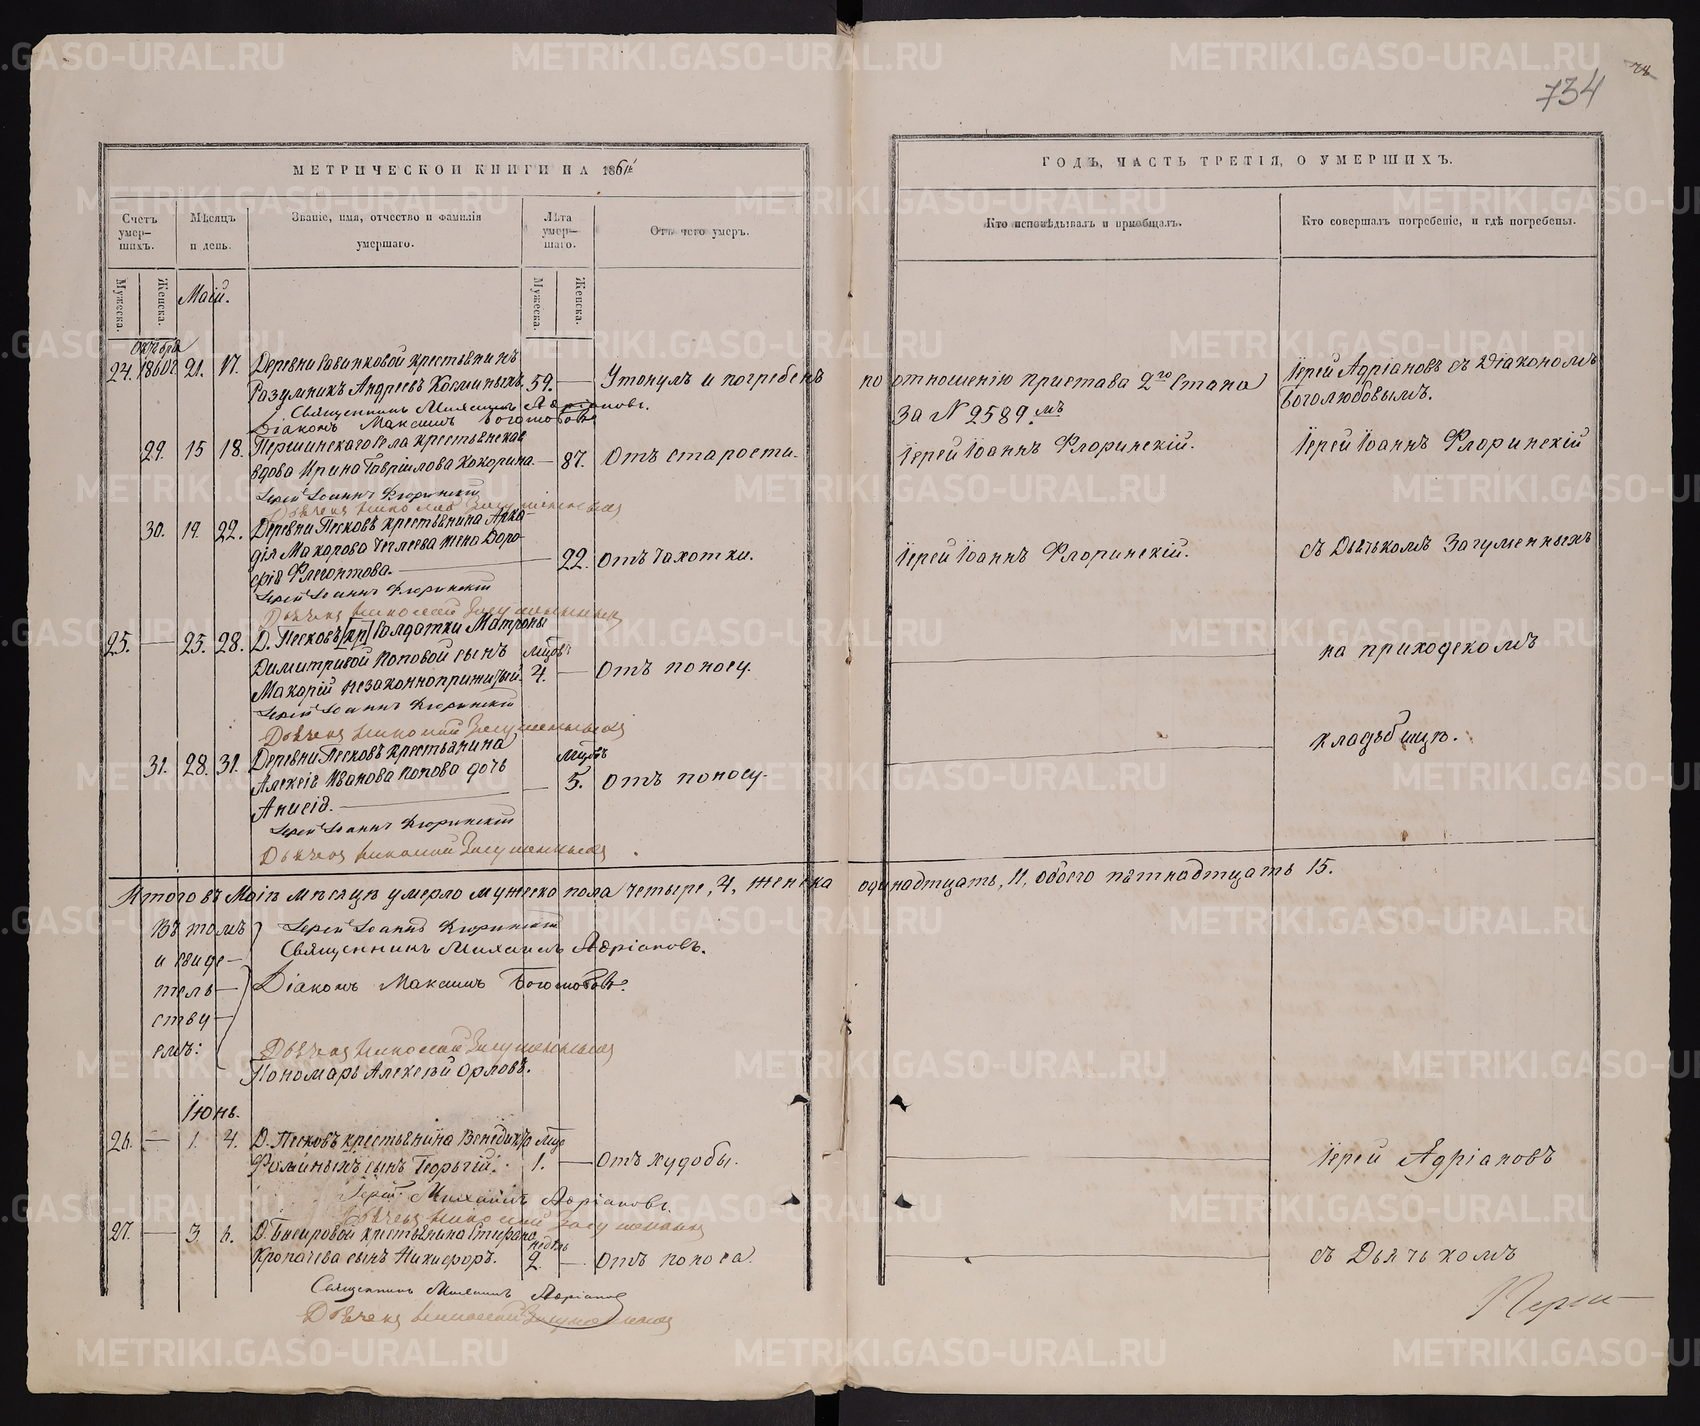 734
МЕТРИЧЕСКОЙ КНИГИ НА 1861
ГОДЪ, ЧАСТЬ ТРЕТІЯ, О УМЕРШИХЪ.
Счетъ умер-шихъ.
Мѣсяцъ и день.
Званіе, имя, отчество и фамилія умершаго.
Лѣта умер-шаго.
Отъ чего умеръ.
Кто исповѣдывалъ и пріобщалъ.
Кто совершалъ погребеніе, и гдѣ погребены.
Мужеска.
Женска.
Маій.
Мужеска.
Женска.
Октября
24. 1860г. 21. 17. Деревни крестьянинъ
Разумникъ Андреевъ 59. — Утонулъ и погребенъ по отношенію пристава 2го Стана
за N 2589.мъ
Іерей Адріановъ съ Діакономъ
Боголюбовымъ.
Священникъ Михаилъ Адріановъ.
Діаконъ Максимъ Боголюбовъ.
29. 15 18. Першинскаго села крестьянская
вдова Ирина Гавріилова Кокорина — 87. Отъ старости.
Іерей Іоаннъ Флоринскій.
Іерей Іоаннъ Флоринскій
Іерей Іоаннъ Флоринскій
Дьячекъ Николай Загуменныхъ
30. 19. 22. Деревни Песковъ крестьянина Арка-
дія Макарова жена Доро-
фія Флегонтова. — 22. Отъ чахотки.
Іерей Іоаннъ Флоринскій.
съ Дьячькомъ Загуменныхъ
Іерей Іоаннъ Флоринскій
Дьячекъ Николай Загуменныхъ
25. — 25. 28. Д. Песковъ [кр] Солдатки Матроны
Димитріевой Поповой сынъ мѣсц.
Макарій незаконноприжитый. 4. — Отъ поносу.
на приходскомъ
Іерей Іоаннъ Флоринскій
Дьячекъ Николай Загуменныхъ
31. 28. 31. Деревни Песковъ крестьянина
Алексія Иванова Попова дочь
Анисія. — 5. Отъ поносу.
кладбищѣ.
Іерей Іоаннъ Флоринскій
Дьячекъ Николай Загуменныхъ
Итого въ Маіѣ мѣсяцѣ умерло мужеска пола четыре, 4, женска одинадтцать, 11, обоего пятнадтцать 15.
Въ томъ и свиде-
тель-
ству-
емъ:
Іерей Іоаннъ Флоринскій
Священникъ Михаилъ Адріановъ.
Діаконъ Максимъ Боголюбовъ.
Дьячекъ Николай Загуменныхъ
Пономарь Алексѣй Орловъ.
Іюнь.
26. — 1. 4. Д. Песковъ крестьянина Венедикта
Фоминыхъ сынъ Георгій. 1. — Отъ худобы.
Іерей Адріановъ
Іерей Михаилъ Адріановъ
Дьячекъ Николай Загуменныхъ
27. — 3. 6. крестьянина Стефана
Кропачева сынъ Никифоръ. недѣль
2. — Отъ поноса.
съ Дьячькомъ
Священникъ Михаилъ Адріановъ
Дьячекъ Николай Загуменныхъ
METRIKI.GASO-URAL.RU